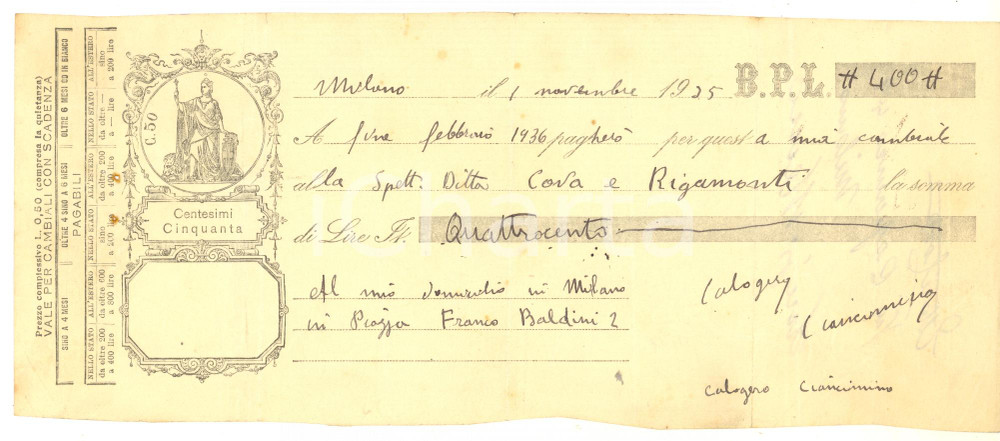 Prezzo complessivo L. 0,50 (compresa la quietanza)
VALE PER CAMBIALI CON SCADENZA
PAGABILI
SINO A 4 MESI
OLTRE 4 SINO A 6 MESI
OLTRE 6 MESI OD IN BIANCO
NELLO STATO
da oltre 200 a 400 lire
ALL'ESTERO
da oltre 600 a 800 lire
NELLO STATO
sino a 200 lire
ALL'ESTERO
da oltre 200 a 400 lire
NELLO STATO
da — a — lire
ALL'ESTERO
sino a 200 lire
C. 50
Centesimi
Cinquanta
Milano il 1 novembre 1935 B.P.L. # 400 #
A fine febbraio 1936 pagherò per questa mia cambiale
alla Spett. Ditta Cova e Rigamonti la somma
di Lire It. Quattrocento
Al mio domicilio in Milano
in Piazza Franco Baldini 2
Calogero
Ciancimino
Calogero Ciancimino